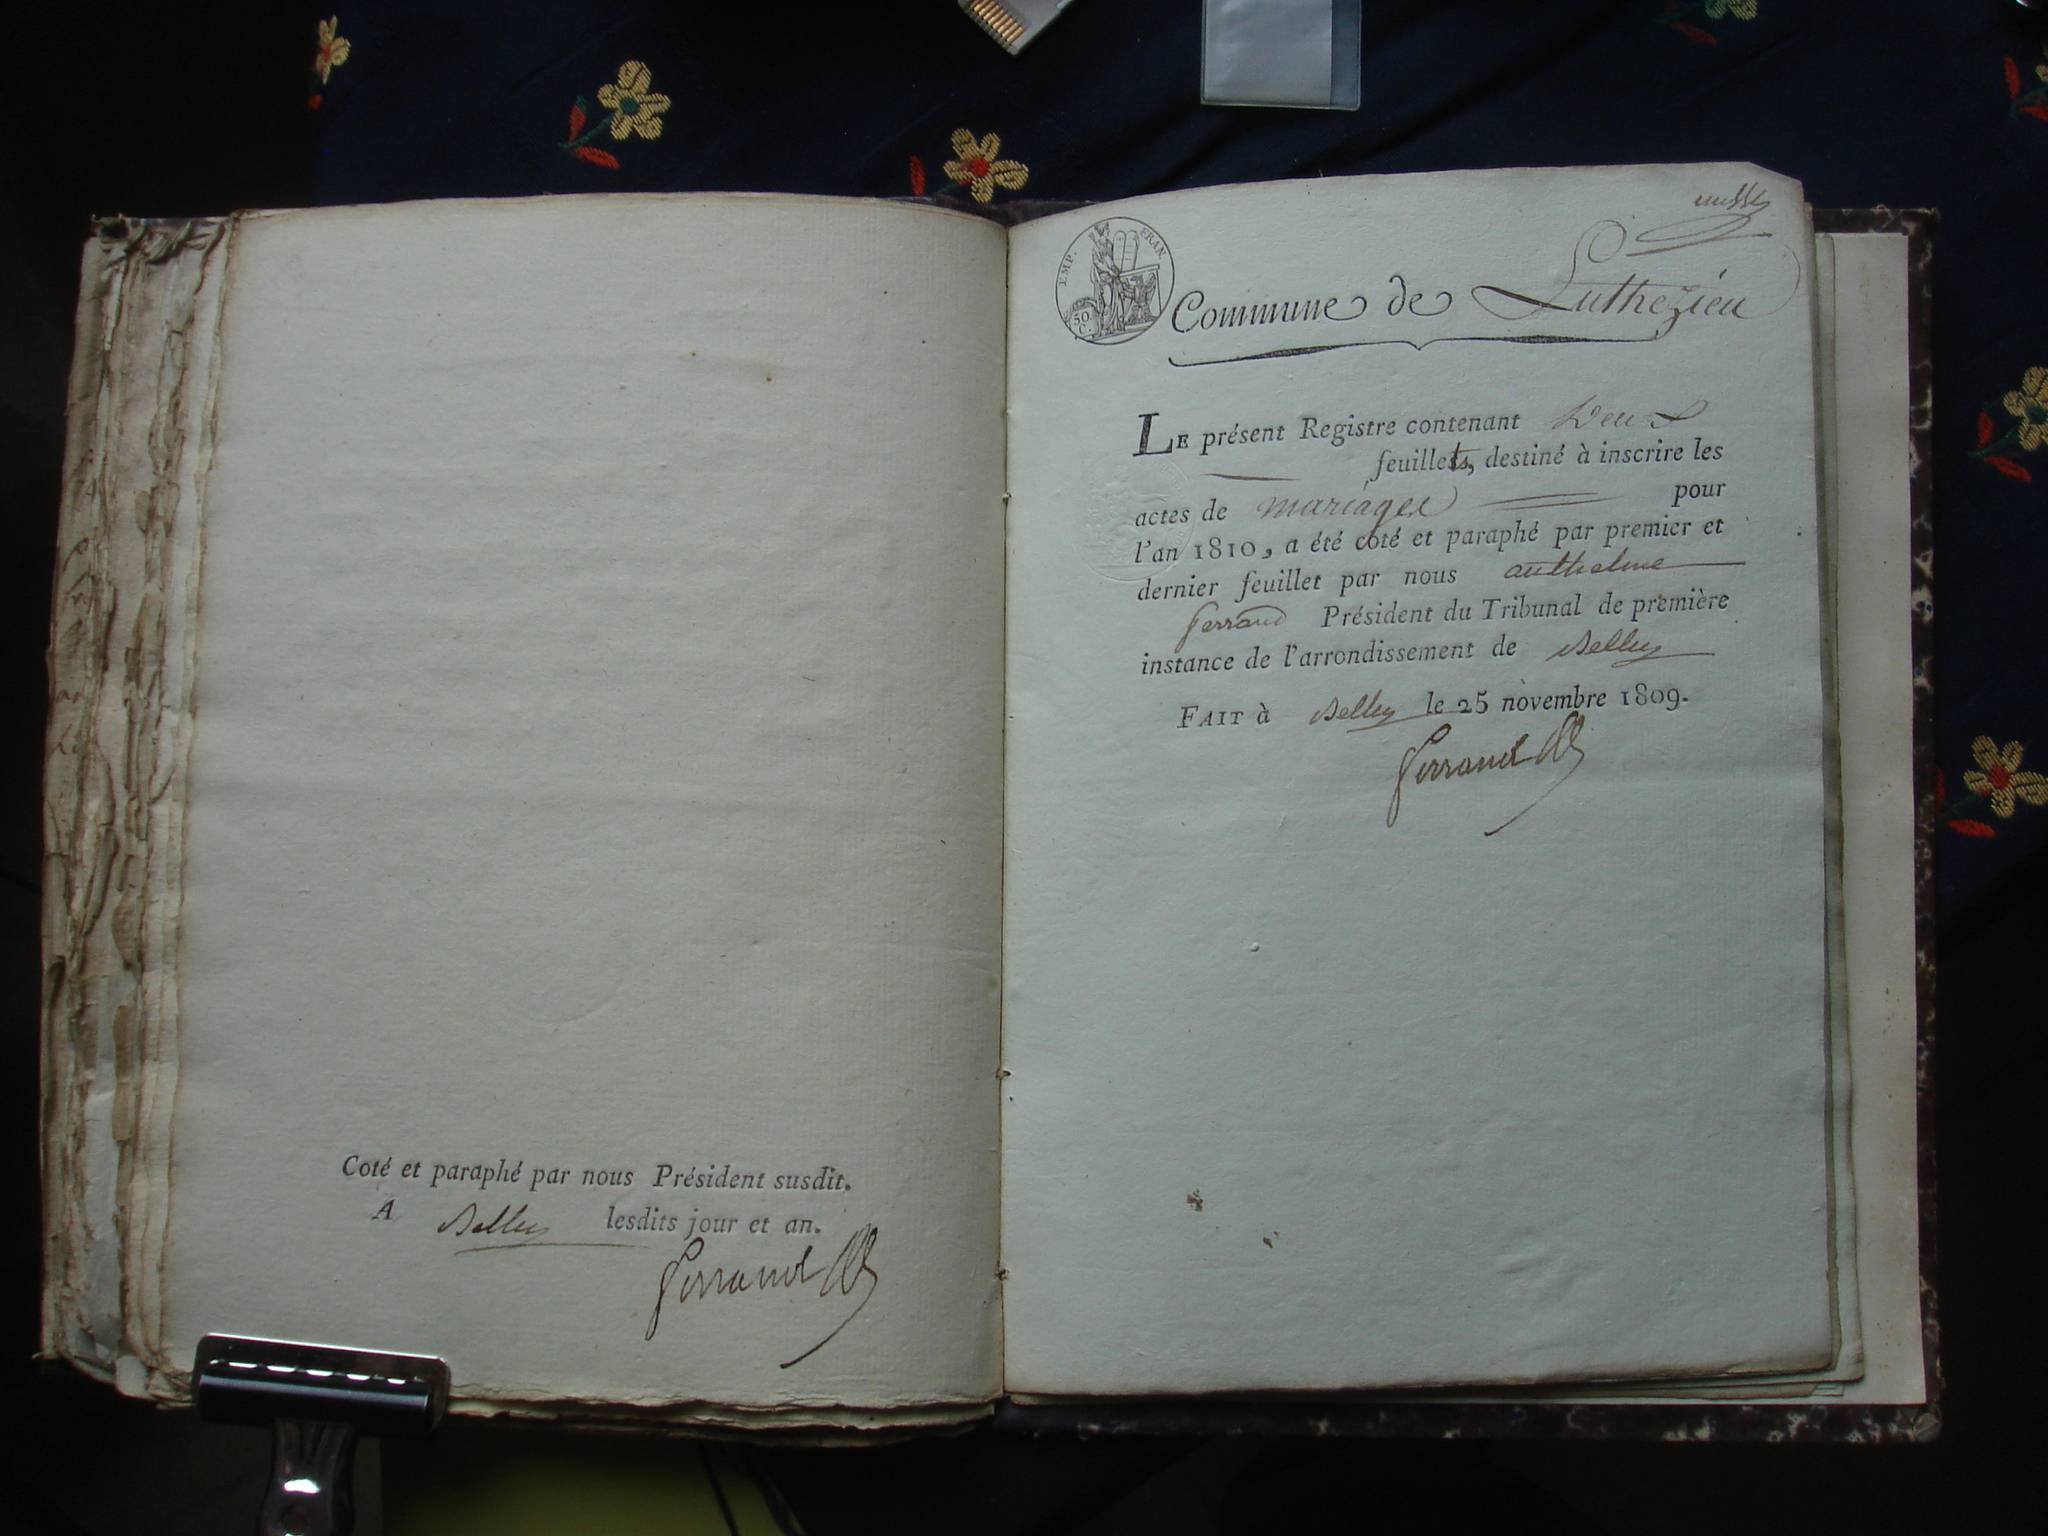 Coté et paraphé par nous Président susdit.
A Belley lesdits jour et an.
Ferrand
EMP. FRAN.
50 C.
Commune de Luthezieu
LE présent Registre contenant deux
feuillets, destiné à inscrire les
actes de mariages pour
l'an 1810, a été coté et paraphé par premier et
dernier feuillet par nous anthelme
ferrand Président du Tribunal de première
instance de l'arrondissement de Belley
FAIT à Belley le 25 novembre 1809.
Ferrand